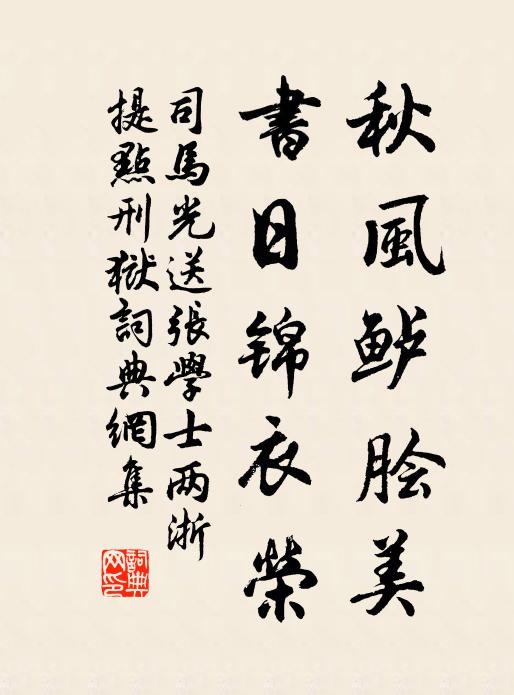 秋風鲈膾美
書日锦衣榮
司馬光送張學士两浙
提點刑獄詞典網集
詞典网印